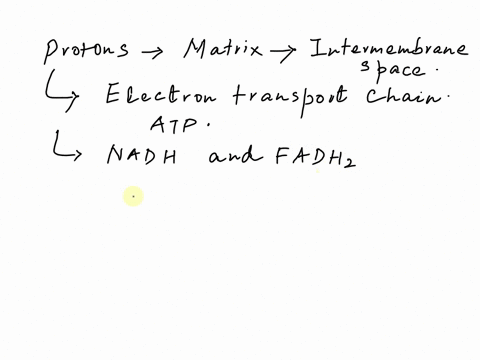 Protons → Matrix → Intermembrane
space.
↳ Electron transport chain.
ATP.
↳ NADH and FADH₂